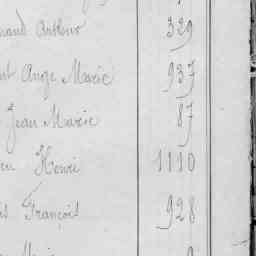 Arthur 329
Ange Marie 937
Jean Marie 87
Henri 1110
François 928